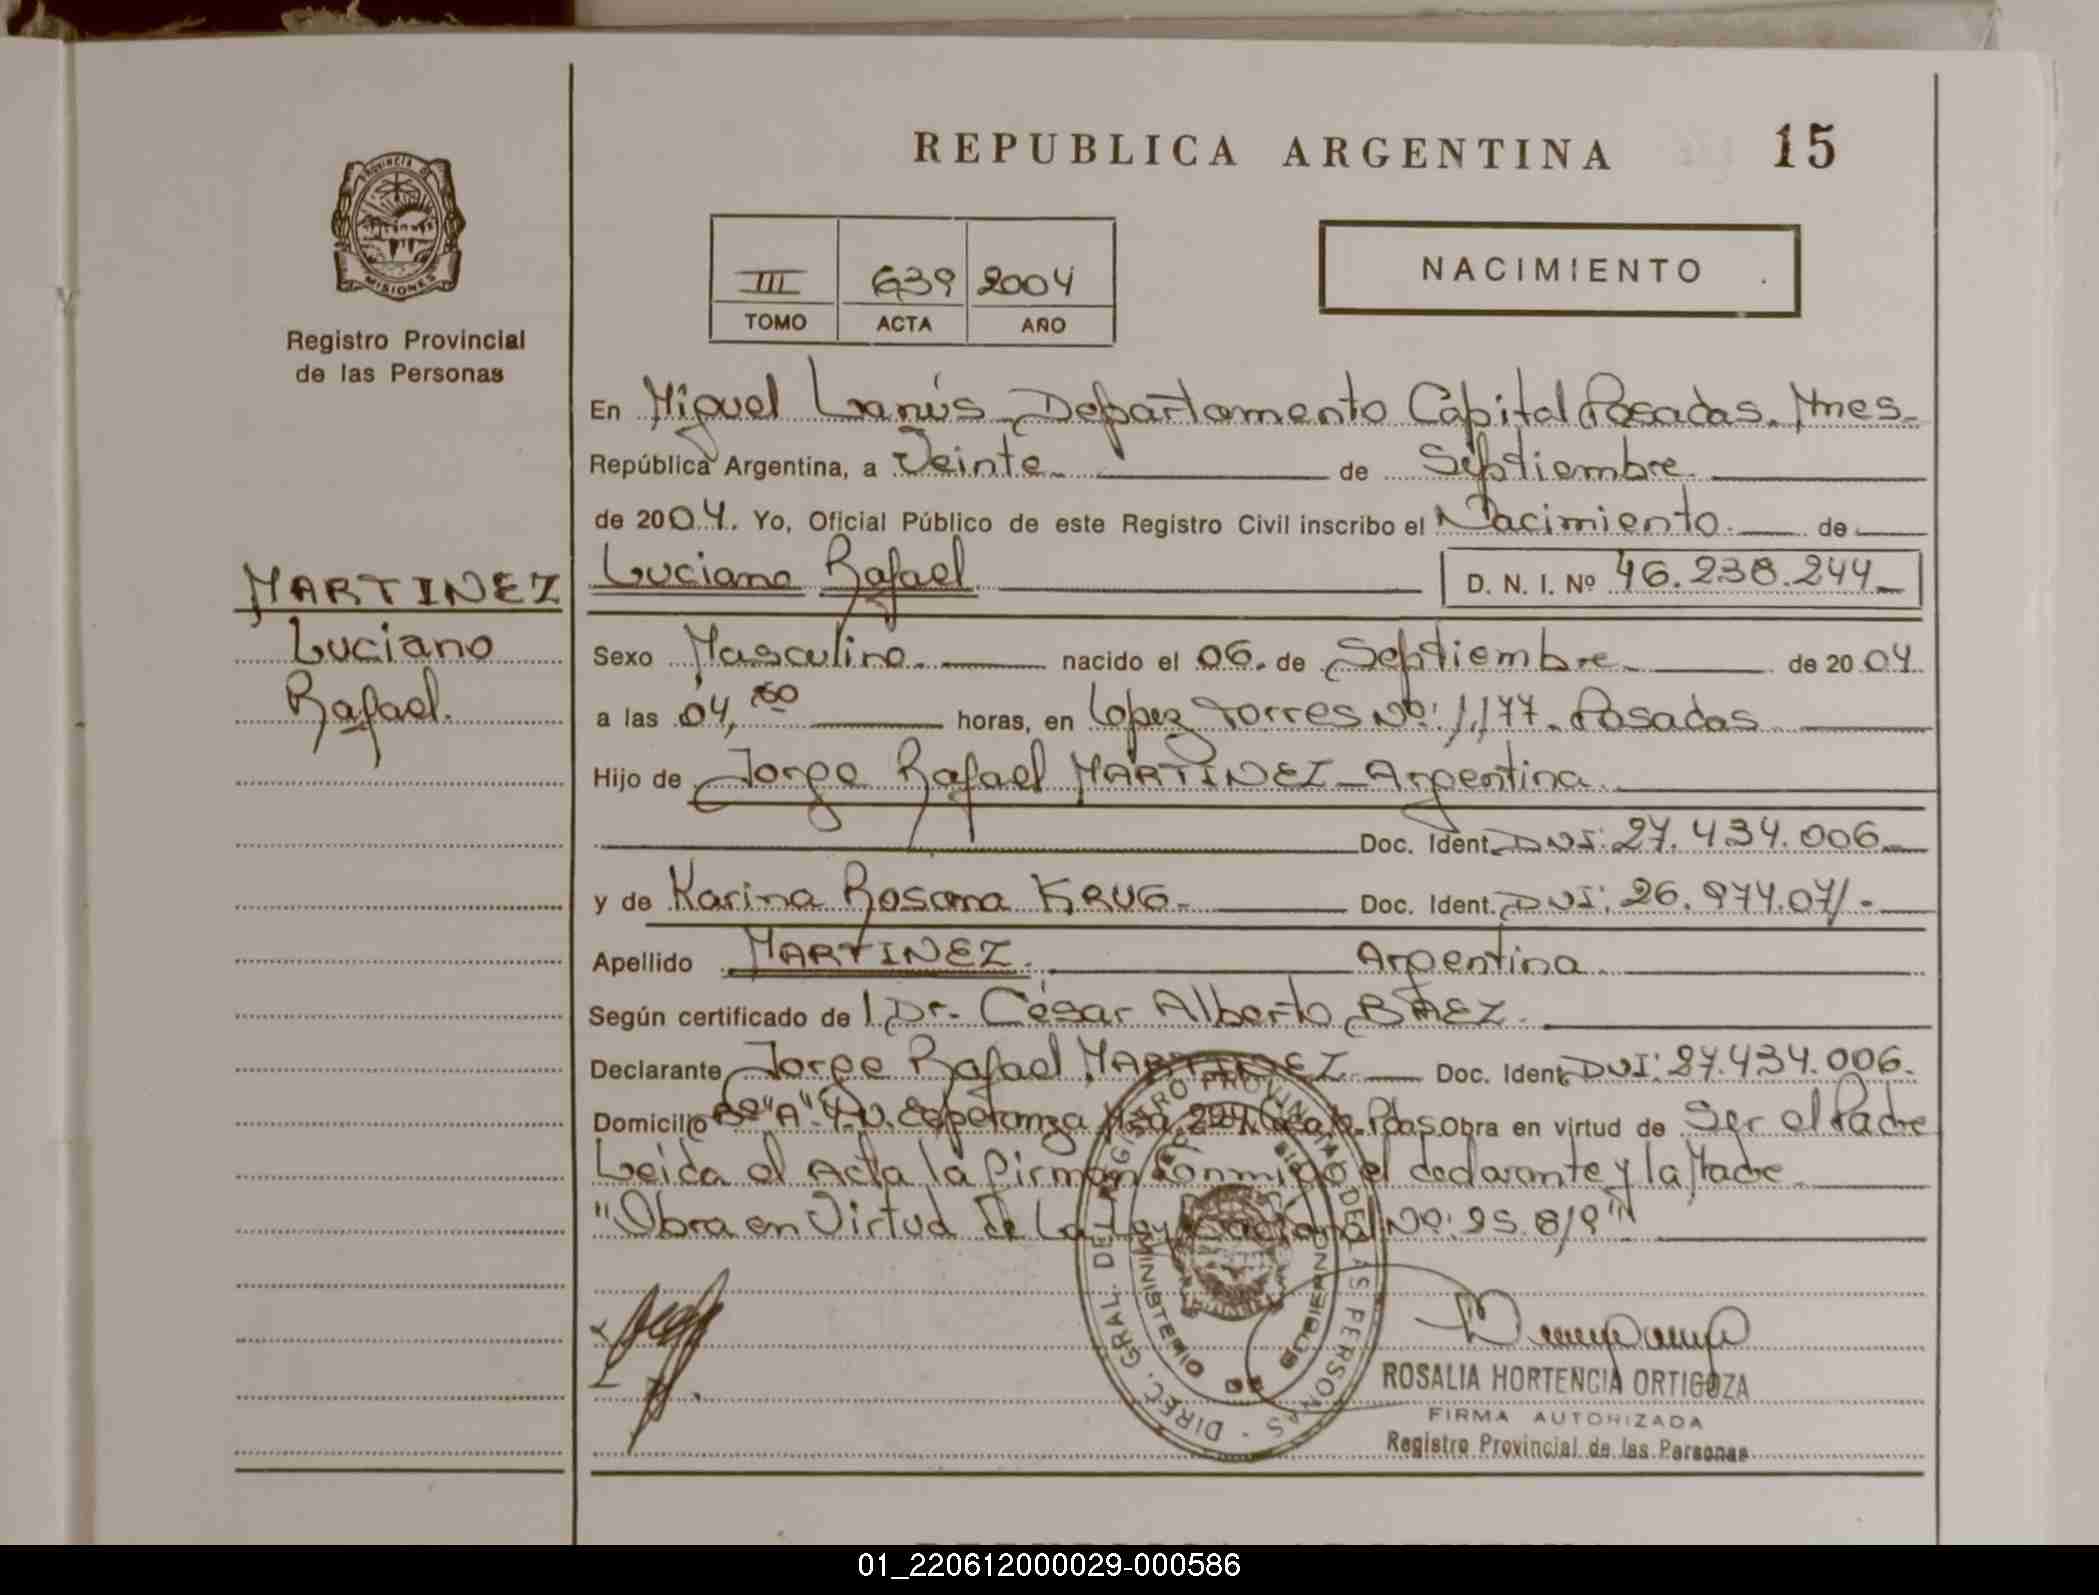 REPUBLICA ARGENTINA 15
PROVINCIA DE
MISIONES
Registro Provincial
de las Personas
III 639 2004
TOMO ACTA AÑO
NACIMIENTO
En Miguel Lanús Departamento Capital Posadas. Mnes-
República Argentina, a Veinte de Septiembre.
de 2004. Yo, Oficial Público de este Registro Civil inscribo el Nacimiento de
Luciano Rafael D. N. I. Nº 46.238.244
MARTINEZ
Luciano
Rafael.
Sexo Masculino. nacido el 06. de Septiembre de 2004.
a las 04, horas, en Lopez Torres Nº: 1.177. Posadas
Hijo de Jorge Rafael MARTINEZ - Argentina
Doc. Ident. DNI: 27.434.006
y de Karina Rosana KRUG - Doc. Ident. DNI: 26.974.071 -
Apellido MARTINEZ. Argentina
Según certificado de l Dr. César Alberto BAEZ.
Declarante Jorge Rafael MARTINEZ Doc. Ident. DNI: 27.434.006.
Domicilio Bº "A" Esperanza Mza Pdas. Obra en virtud de Ser el Padre
Leida el Acta la firman conmigo el declarante y la Madre
"Obra en Virtud de La Ley Nacional Nº: 25.819"
DIREC. GRAL. DEL REGISTRO PROVINCIAL DE LAS PERSONAS -
MINISTERIO DE GOBIERNO
ROSALIA HORTENCIA ORTIGOZA
FIRMA AUTORIZADA
Registro Provincial de las Personas
01_220612000029-000586